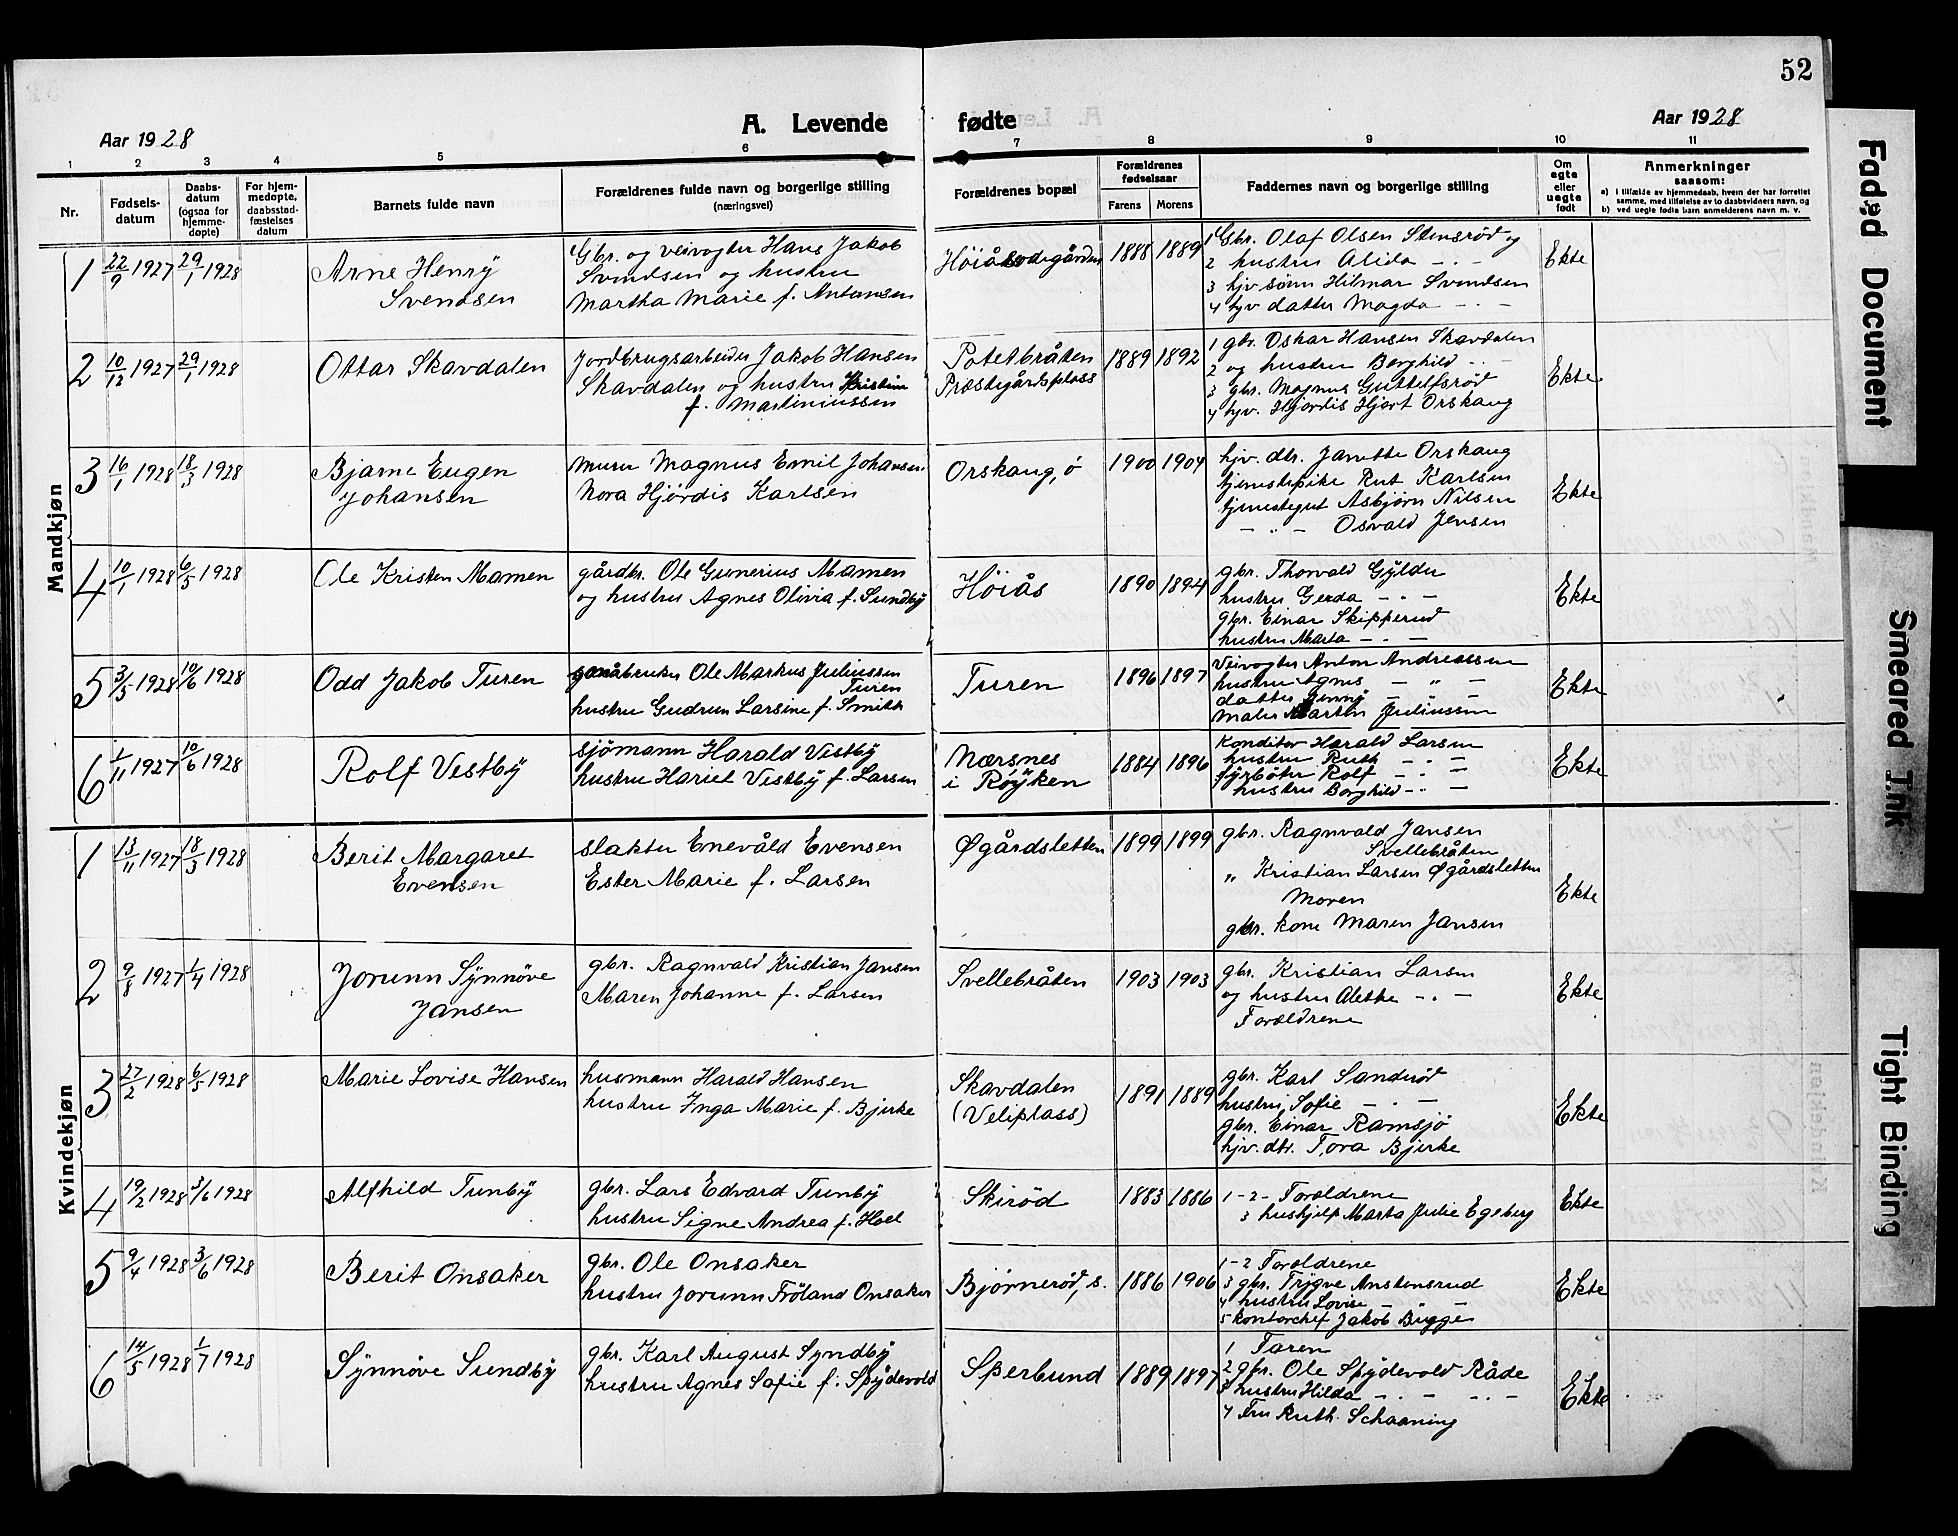 52
A. Levende fødte
Aar 1928
Aar 1928
1 2 3 4 5 6 7 8 9 10 11
Nr.
Fødsels-
datum
Daabs-
datum
(ogsaa for
hjemme-
døpte)
For hjem-
medøpte,
daabsstad-
fæstelses
datum
Barnets fulde navn
Forældrenes fulde navn og borgerlige stilling
(næringsvei)
Forældrenes bopæl
Forældrenes
fødselsaar
Farens Morens
Faddernes navn og borgerlige stilling
Om
ægte
eller
uegte
født
Anmerkninger
saasom:
a) i tilfælde av hjemmedaab, hvem der har forrettet
samme, med tilføielse av to daabsvidners navn, og
b) ved uegte fødte barn anmelderens navn m. v.
Mandkjøn
1 22/9 1927 29/1 1928
Arne Henry
Svendsen
Gbr. og veivogter Hans Jakob
Svendsen og hustru
Martha Marie f. Antonsen
1888 1889
1 Gbr. Olaf Olsen Stensrød og
2 hustru Alida - . -
3 hjv sønn Hilmar Svendsen
4 hjv datter Magda - . -
Ekte
2 10/12 1927 29/1 1928
Ottar Skavdalen
Jordbrugsarbeider Jakob Hansen
Skavdalen og hustru Kristine
f. Martiniussen
Potetbråten
Præstegårdsplass
1889 1892
1 gbr. Oskar Hansen Skavdalen
2 og hustru Borghild - . -
3 gbr. Magnus Guttelfsrød
4 hjv. Hjørdis Hjort Orskaug
Ekte
3 16/1 1928 18/3 1928
Bjarne Eugen
Johansen
Murer Magnus Emil Johansen
Nora Hjördis Karlsen
Orskaug, ö
1900 1904
hjv. dtr. Janette Orskaug
tjenestepike Rut Karlsen
tjenestegut Asbjørn Nilsen
- . - Osvald Jensen
Ekte
4 10/1 1928 6/5 1928
Ole Kristen Mamen
gårdbr. Ole Gunerius Mamen
og hustru Agnes Olivia f. Sundby
Höiås
1890 1894
gbr. Thorvald Gylder
hustru Gerda - . -
gbr. Einar Skipperud
hustru Marta - . -
Ekte
5 3/5 1928 10/6 1928
Odd Jakob Turen
gårdbruker Ole Markus Juliussen
Turen
hustru Gudrun Larsine f. Smith
Turen
1896 1897
Veivogter Anton Andreassen
hustru Agnes - " -
datter Jenny - " -
Maler Martin Juliussen
Ekte
6 1/11 1927 10/6 1928
Rolf Vestby
sjömann Harald Vestby
hustru Hariet Vestby f. Larsen
Nærsnes
i Röyken
1884 1896
Konditor Harald Larsen
hustru Ruth - . -
fyrböter Rolf - . -
hustru Borghild - . -
Ekte
Kvindekjøn
1 13/11 1927 18/3 1928
Berit Margaret
Evensen
slakter Enevåld Evensen
Ester Marie f. Larsen
Øgårdsletten
1899 1899
gbr. Ragnvald Jansen
Svellebråten
" Kristian Larsen Øgårdsletten
Moren
gbr. kone Maren Jansen
Ekte
2 9/8 1927 1/4 1928
Jorunn Synnöve
Jansen
gbr. Ragnvald Kristian Jansen
Maren Johanne f. Larsen
Svellebråten
1903 1903
gbr. Kristian Larsen
og hustru Alette - . -
Foreldrene
Ekte
3 27/2 1928 6/5 1928
Marie Lovise Hansen
husmann Harald Hansen
hustru Inga Marie f. Bjerke
Skavdalen
(Veliplass)
1891 1889
gbr. Karl Sanderöd
hustru Sofie - . -
gbr. Einar Ramsjö
hjv. dtr. Tora Bjerke
Ekte
4 19/2 1928 3/6 1928
Alfhild Tunby
gbr. Lars Edvard Tunby
hustru Signe Andrea f. Hoel
Skiröd
1883 1886
1-2- Foreldrene
3 hushjelp Marta Julie Egeberg
Ekte
5 9/4 1928 3/6 1928
Berit Onsaker
gbr. Ole Onsaker
hustru Jorunn Fröland Onsaker
Bjørneröd, s.
1886 1906
1-2 Foreldrene
3 gbr. Trygve Anstensrud
4 hustru Lovise - -
5 kontorchef Jakob Bugge
Ekte
6 14/5 1928 1/7 1928
Synnöve Sundby
gbr. Karl August Syndby
hustru Agnes Sofie f. Spydevold
Sperbund
1889 1897
1 Faren
2 gbr. Ole Spydevold Råde
3 hustru Hilda - . - - . -
4 Fru Ruth Schaaning
Ekte
Faded Document
Smeared Ink
Tight Binding